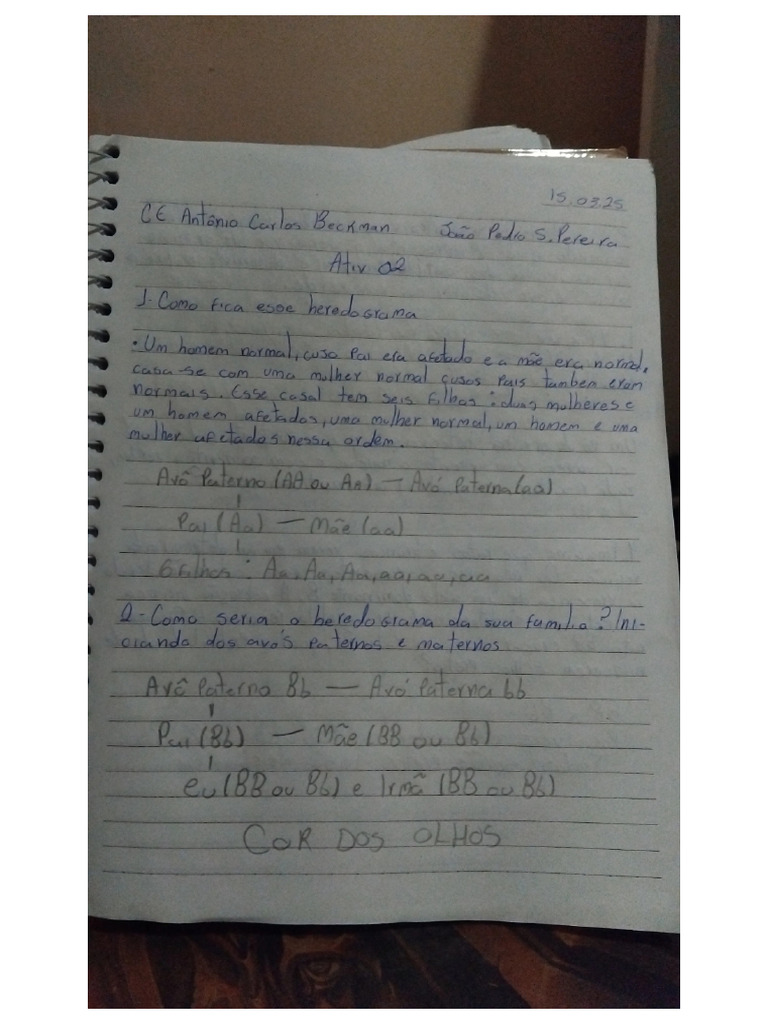 15.03.25
CE Antônio Carlos Beckman João Pedro S. Pereira
Ativ 02
1-Como fica esse heredograma
• Um homem normal, cujo Pai era afetado e a mãe era normal,
casa-se com uma mulher normal cujos Pais tambem eram
normais. Esse casal tem seis filhos: duas mulheres e
um homem afetados, uma mulher normal, um homem e uma
mulher afetados nessa ordem.
Avô Paterno (AA ou Aa) — Avó Paterna (aa)
Pai (Aa) — Mãe (aa)
6 filhos: Aa, Aa, Aa, aa, aa, aa
2-Como seria o heredograma da sua família? Ini-
ciando dos avós Paternos e maternos
Avô Paterno Bb — Avó Paterna bb
Pai (Bb) — Mãe (BB ou Bb)
eu (BB ou Bb) e Irmã (BB ou Bb)
COR DOS OLHOS